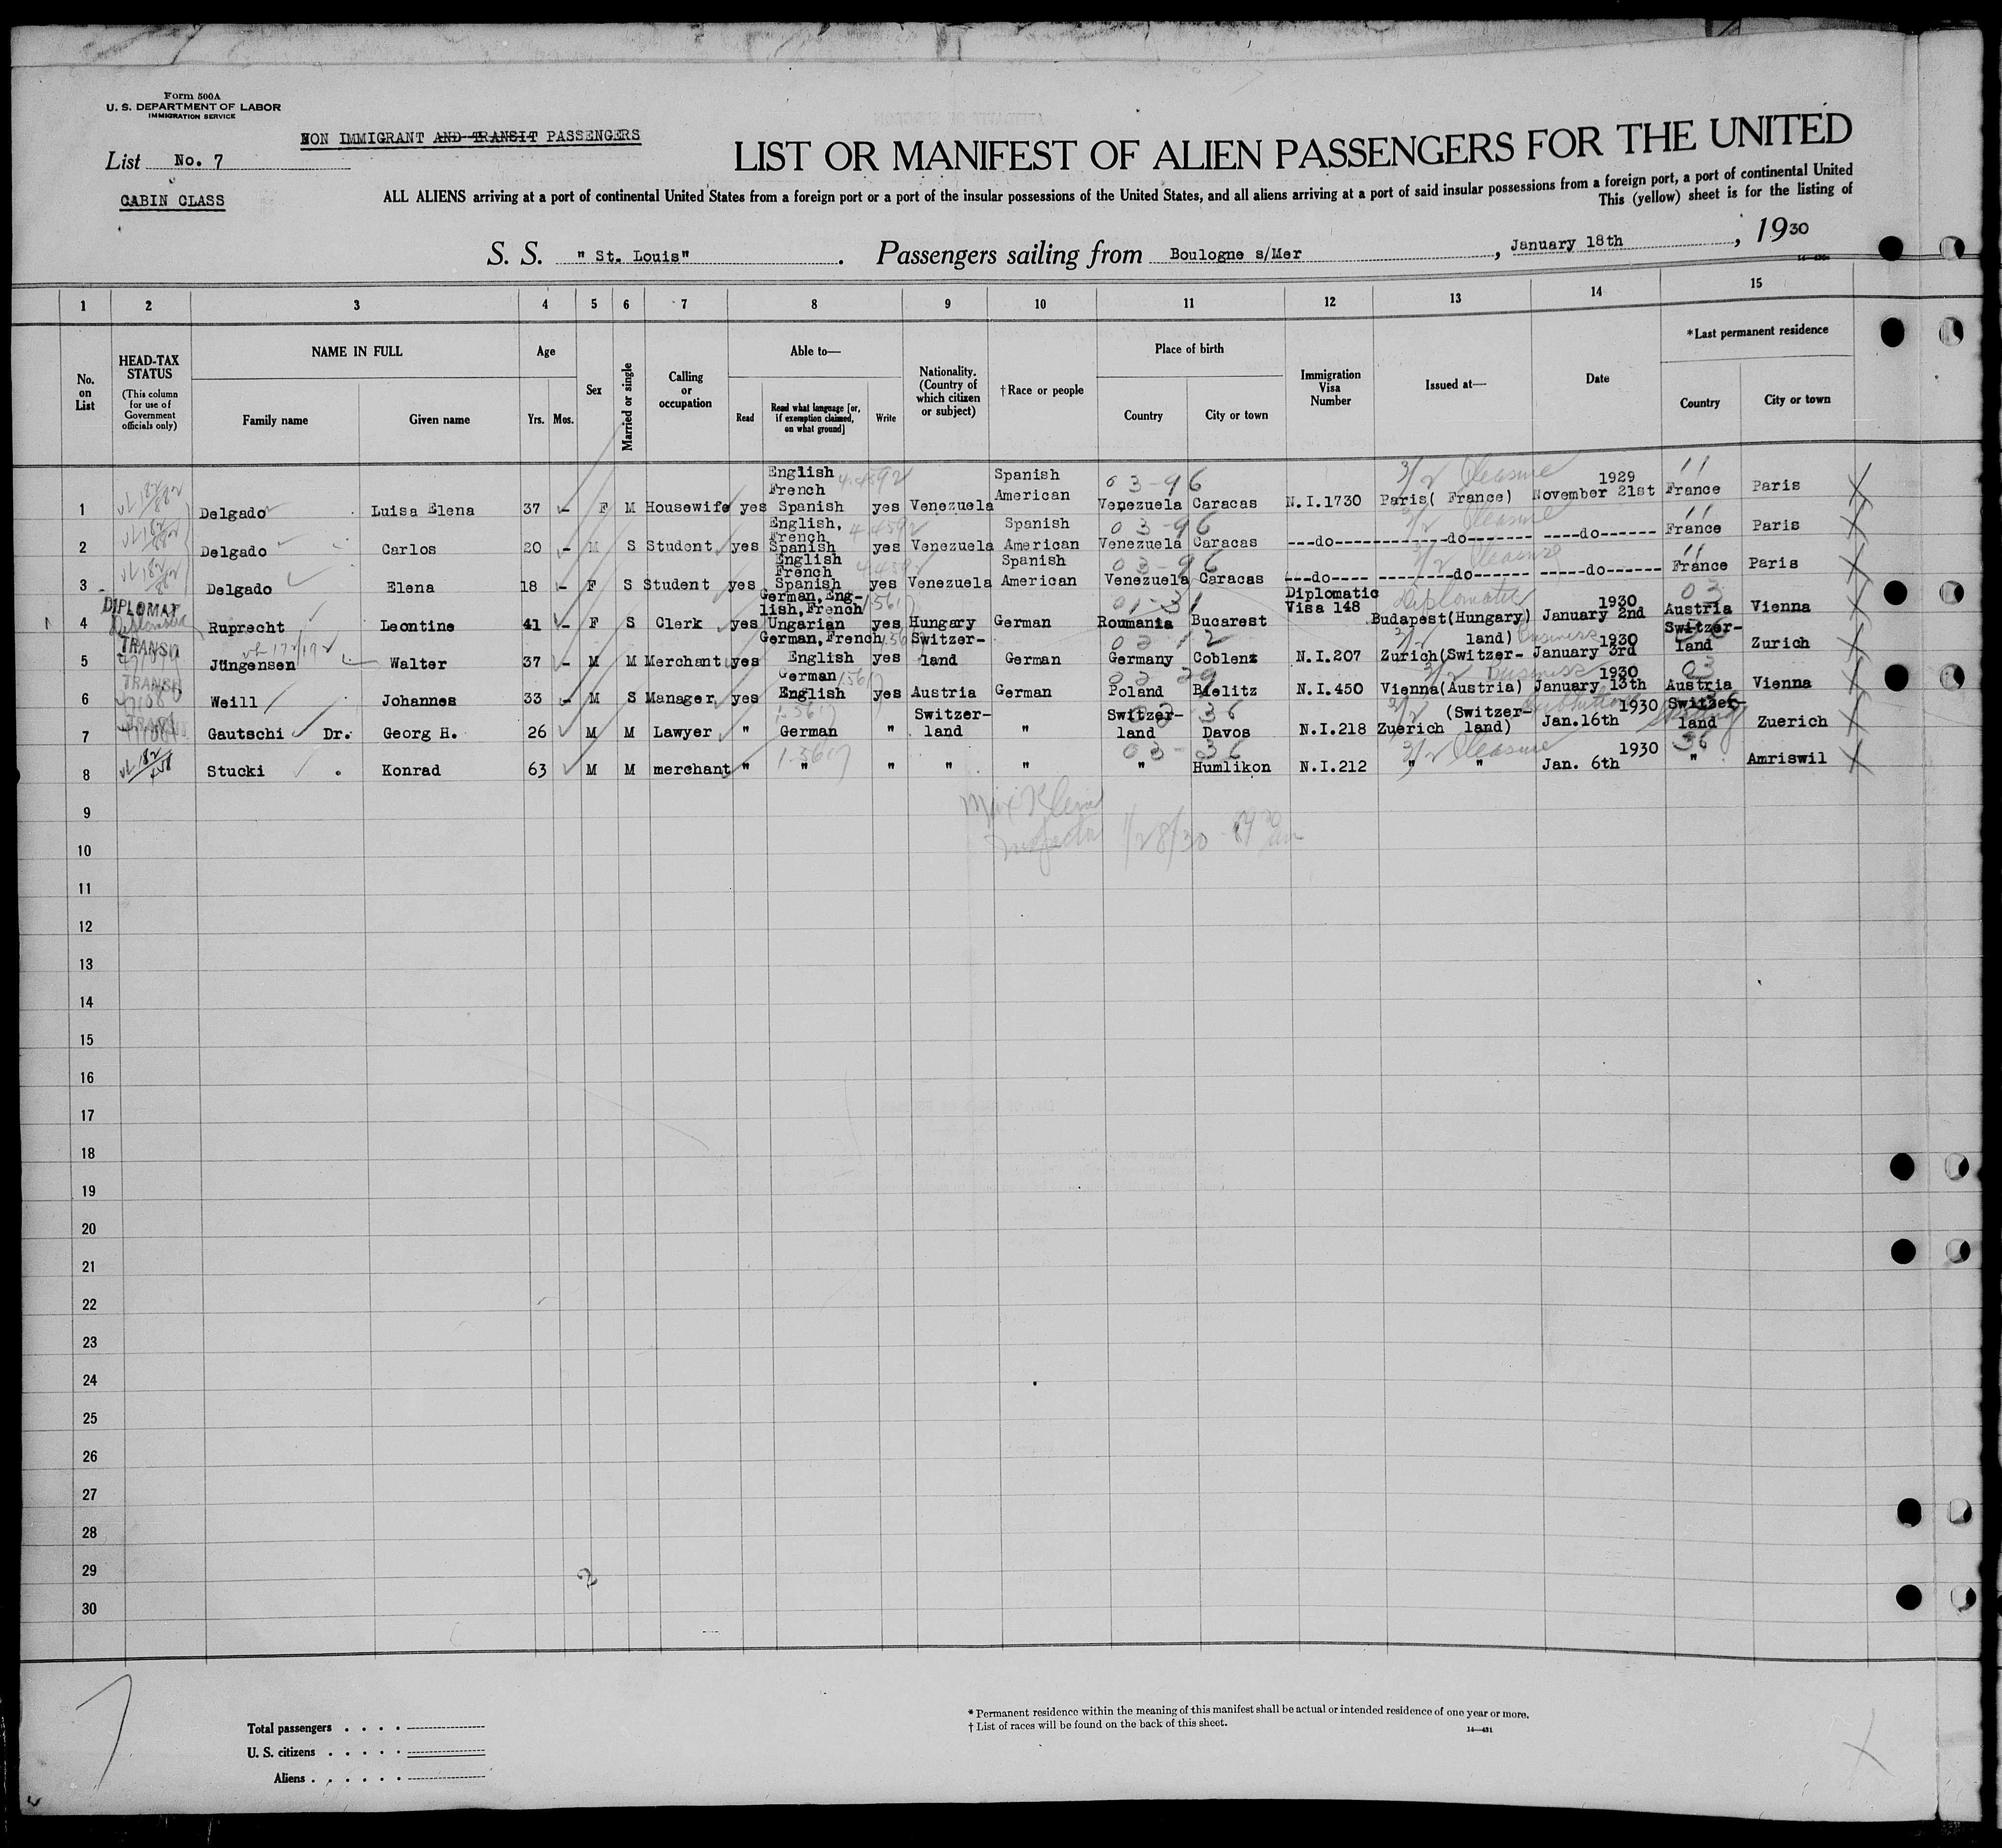 Form 500A
U. S. DEPARTMENT OF LABOR
IMMIGRATION SERVICE
NON IMMIGRANT AND TRANSIT PASSENGERS
List No. 7
CABIN CLASS
LIST OR MANIFEST OF ALIEN PASSENGERS FOR THE UNITED
ALL ALIENS arriving at a port of continental United States from a foreign port or a port of the insular possessions of the United States, and all aliens arriving at a port of said insular possessions from a foreign port, a port of continental United
This (yellow) sheet is for the listing of
S. S. "St. Louis". Passengers sailing from Boulogne s/Mer, January 18th, 1930
1 2 3 4 5 6 7 8 9 10 11 12 13 14 15
No. on List
HEAD-TAX STATUS
(This column for use of Government officials only)
NAME IN FULL
Family name Given name
Age
Yrs. Mos.
Sex
Married or single
Calling or occupation
Able to—
Read
Read what language [or, if exemption claimed, on what ground]
Write
Nationality. (Country of which citizen or subject)
†Race or people
Place of birth
Country City or town
Immigration Visa Number
Issued at—
Date
*Last permanent residence
Country City or town
1 Delgado Luisa Elena 37 - F M Housewife yes English French Spanish yes Venezuela Spanish American 03-96 Venezuela Caracas N.I.1730 3/2 Pleasure Paris( France) 1929 November 21st 11 France Paris
2 Delgado Carlos 20 - M S Student yes English, French Spanish yes Venezuela Spanish American 03-96 Venezuela Caracas ---do--- 3/2 Pleasure ---do--- ----do------ 11 France Paris
3 Delgado Elena 18 - F S Student yes English French Spanish yes Venezuela Spanish American 03-96 Venezuela Caracas ---do---- 3/2 Pleasure --------do------ -----do------ 11 France Paris
DIPLOMAT
4 Ruprecht Leontine 41 - F S Clerk yes German, English, French Ungarian yes Hungary German 01-31 Roumania Bucarest Diplomatic Visa 148 Diplomatic Budapest(Hungary) 1930 January 2nd 03 Austria Vienna
TRANSIT
5 Jüngensen Walter 37 - M M Merchant yes German, French English yes Switzer-land German Germany Coblenz N.I.207 Zurich(Switzer-land) Business 1930 January 3rd Switzer-land Zurich
TRANSIT
6 Weill Johannes 33 - M S Manager yes German English yes Austria German Poland Bielitz N.I.450 Business Vienna(Austria) 1930 January 13th 03 Austria Vienna
TRANSIT
7 Gautschi Dr. Georg H. 26 M M Lawyer " German " Switzer-land " Switzer-land Davos N.I.218 Zuerich (Switzer-land) 1930 Jan.16th Switzer-land Zuerich
8 Stucki Konrad 63 M M merchant " " " " " 03-36 " Humlikon N.I.212 3/2 Pleasure " " 1930 Jan. 6th 36 " Amriswil
9
Max Klein
10
Inspector 1/28/30
11
12
13
14
15
16
17
18
19
20
21
22
23
24
25
26
27
28
29
30
Total passengers . . . .
U. S. citizens . . . . .
Aliens . . . . . .
* Permanent residence within the meaning of this manifest shall be actual or intended residence of one year or more.
† List of races will be found on the back of this sheet.
14—431